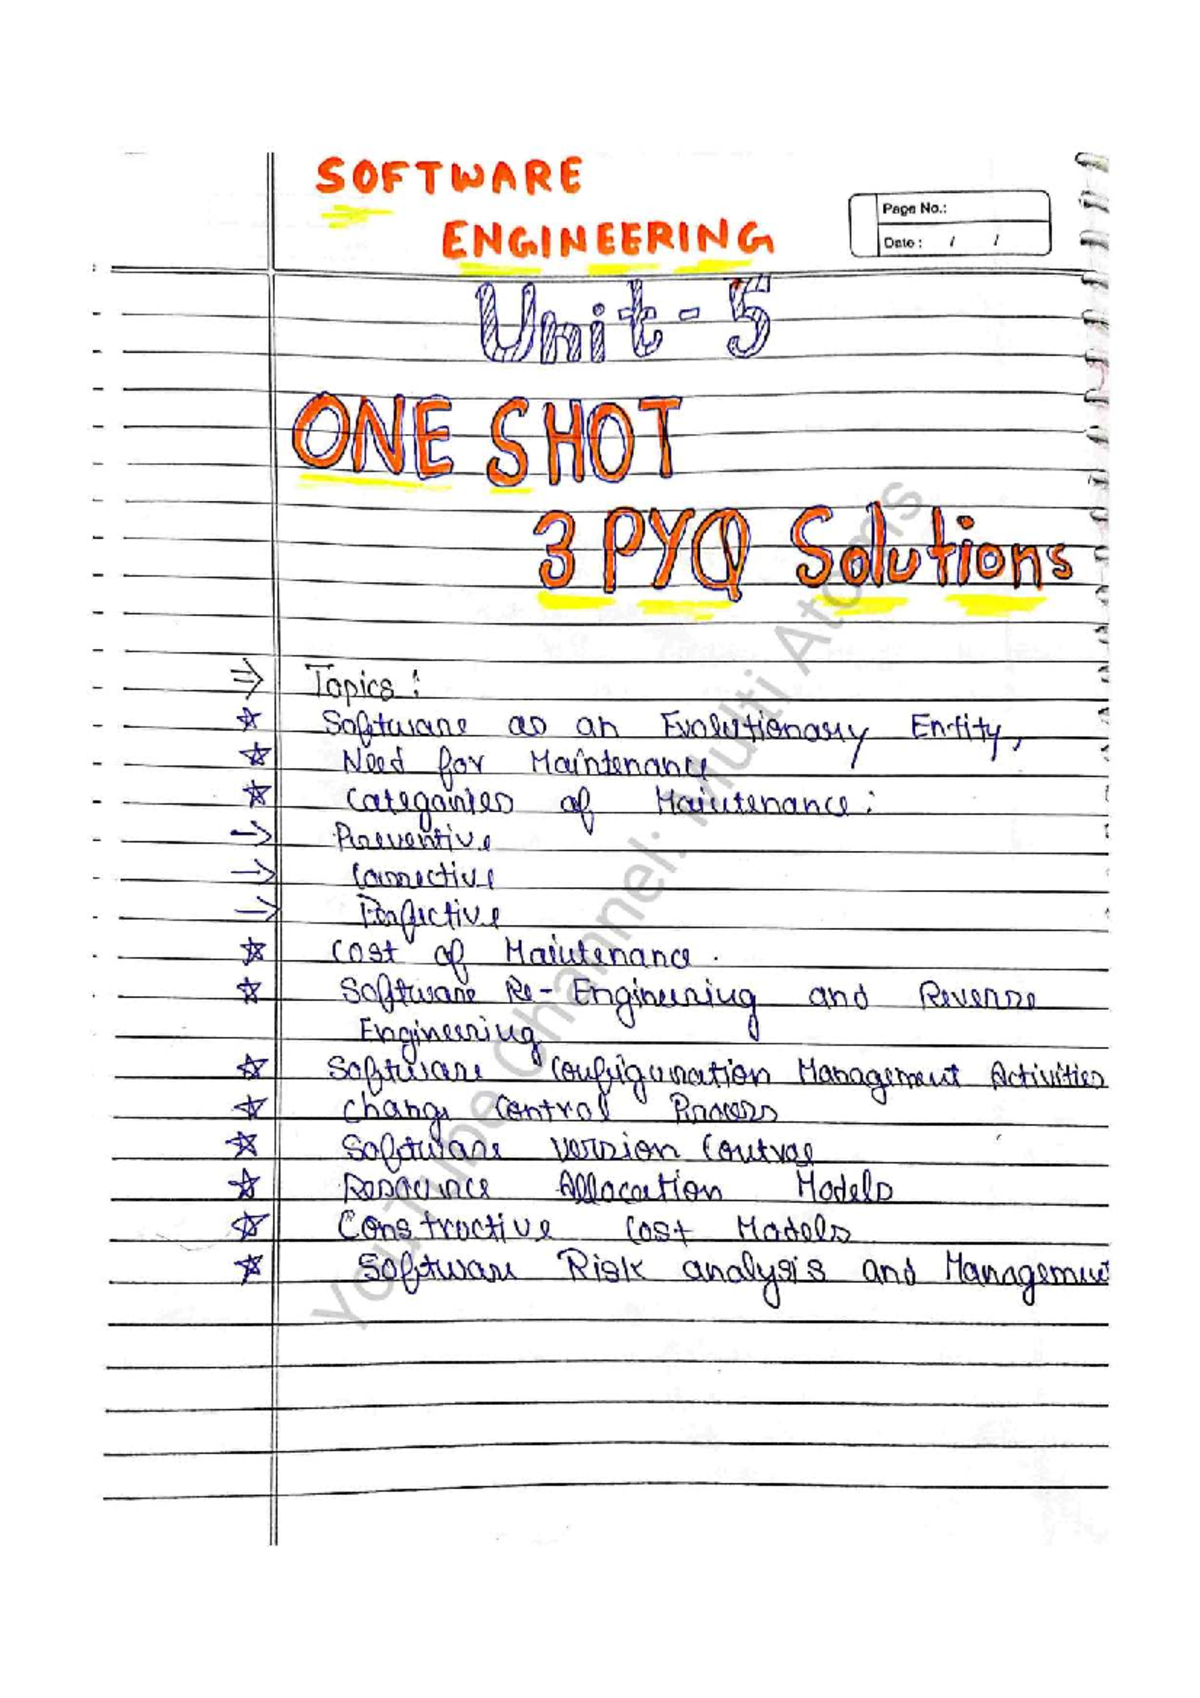 SOFTWARE
ENGINEERING
Page No.:
Date : / /
Unit - 5
ONE SHOT
3 PYQ Solutions
⇒ Topics :
☆ Software as an Evolutionary Entity,
☆ Need for Maintenance
☆ Categories of Maintenance :
→ Preventive
→ Corrective
→ Perfective
☆ Cost of Maintenance .
☆ Software Re-Engineering and Reverse
Engineering
☆ Software Configuration Management Activities
☆ Change Control Process
☆ Software Version Control
☆ Resource Allocation Models
☆ Constructive Cost Models
☆ Software Risk analysis and Management
YouTube Channel: Multi Atoms